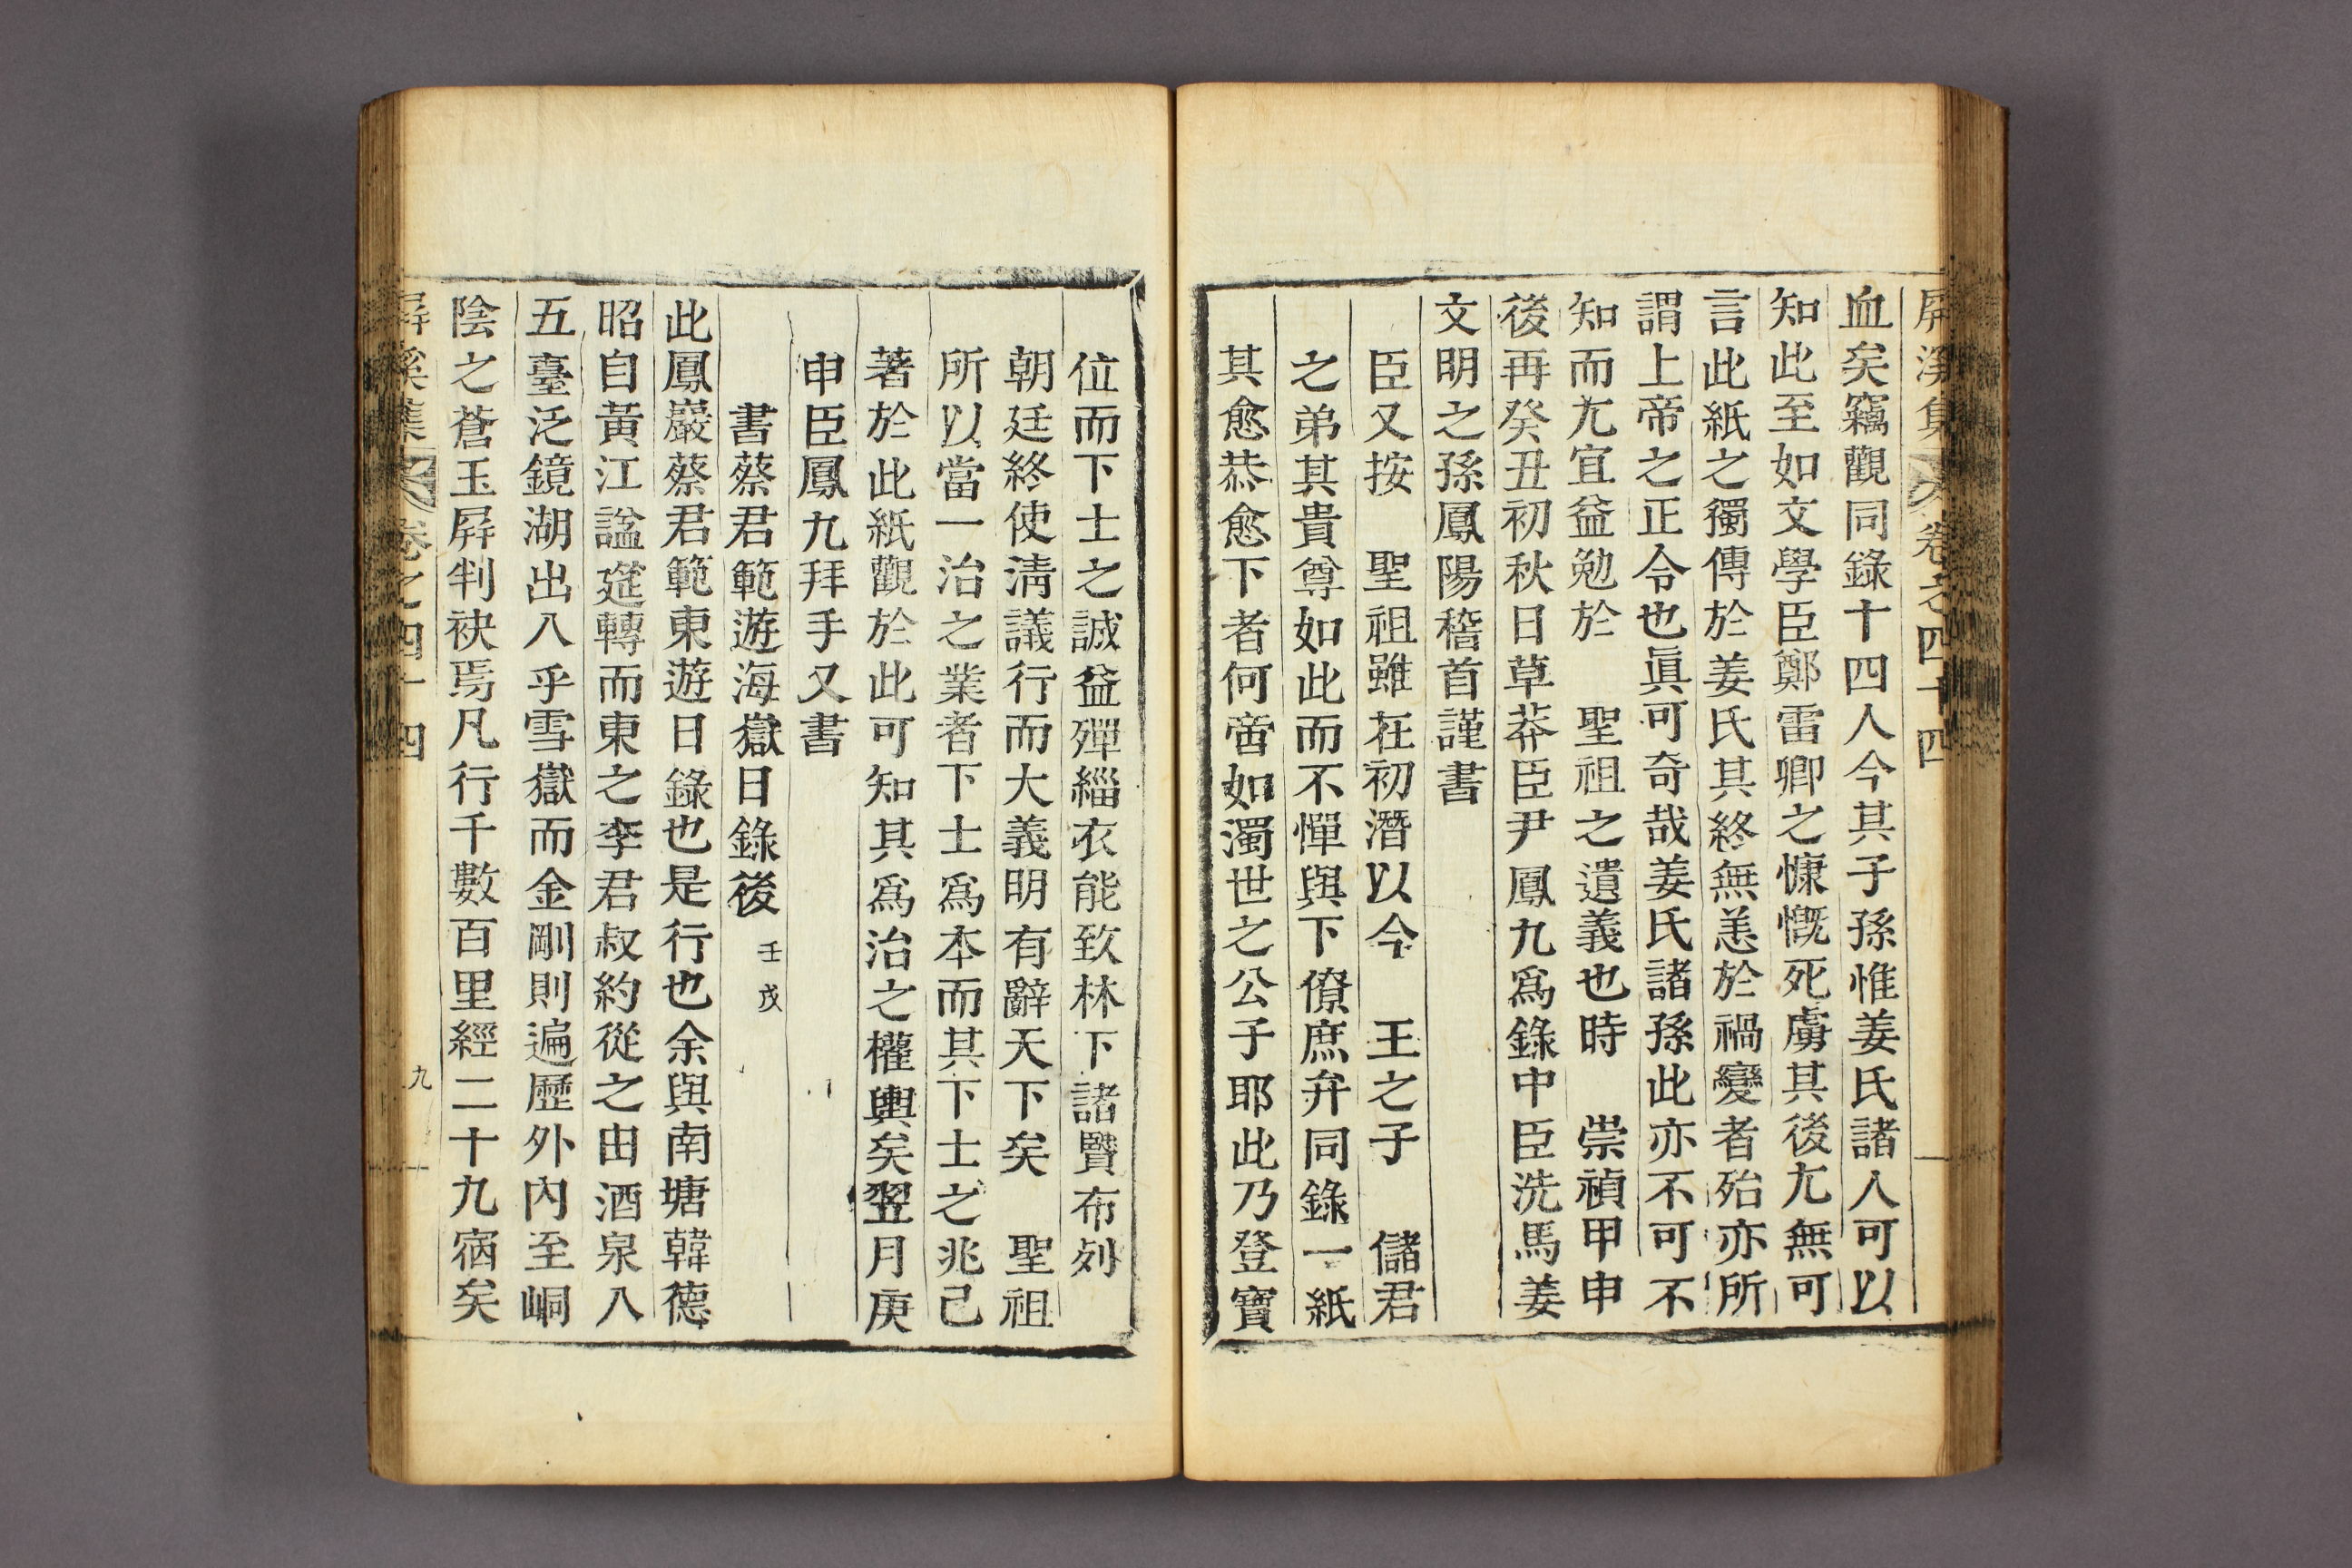 屛溪集 卷之四十四
血矣竊觀同錄十四人今其子孫惟姜氏諸人可以
知此至如文學臣鄭雷卿之慷慨死虜其後尤無可
言此紙之獨傳於姜氏其終無恙於禍變者殆亦所
謂上帝之正令也眞可奇哉姜氏諸孫此亦不可不
知而尤宜益勉於 聖祖之遺義也時 崇禎甲申
後再癸丑初秋日草莽臣尹鳳九爲錄中臣洗馬姜
文明之孫鳳陽稽首謹書
臣又按 聖祖雖在初潛以今 王之子 儲君
之弟其貴尊如此而不憚與下僚庶弁同錄一紙
其愈恭愈下者何啻如濁世之公子耶此乃登寶
位而下士之誠益殫緇衣能致林下諸賢布列
朝廷終使淸議行而大義明有辭天下矣 聖祖
所以當一治之業者下士爲本而其下士之兆已
著於此紙觀於此可知其爲治之權輿矣翌月庚
申臣鳳九拜手又書
書蔡君範遊海嶽日錄後 壬戌
此鳳巖蔡君範東遊日錄也是行也余與南塘韓德
昭自黃江諡筵轉而東之李君叔約從之由酒泉八
五臺泛鏡湖出八乎雪嶽而金剛則遍歷外內至峒
陰之蒼玉屛判袂焉凡行千數百里經二十九宿矣
屛溪集 卷之四十四 九